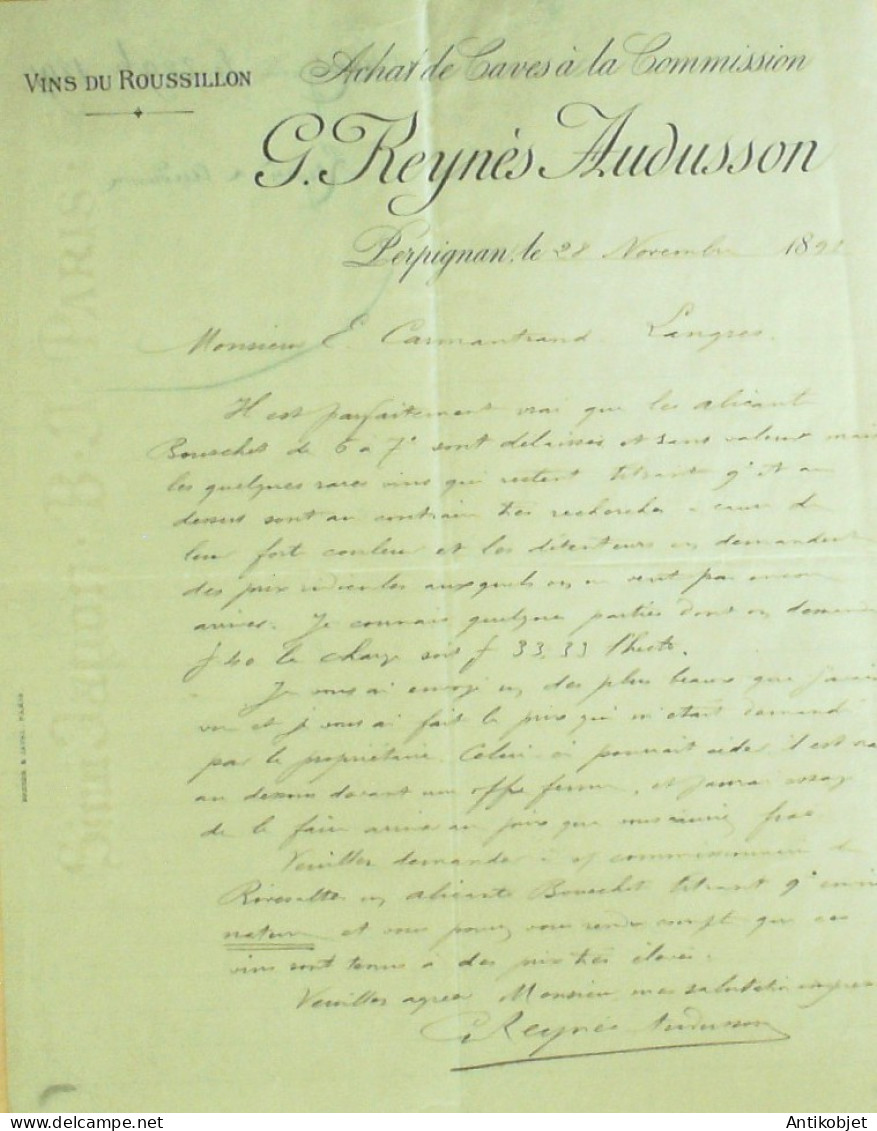 VINS DU ROUSSILLON
Achat de Caves à la Commission
G. Reynès Audusson
Perpignan, le 28 Novembre 189
Monsieur E. Carmantrand Langres.
Il est parfaitement vrai que les alicante
Bouschet de 6 a 7° sont délaissés et sans valeur mais
les quelques rares vins qui restent titrant 9° et au
dessus sont au contraire très recherchés a cause de
leur fort couleur et les détenteurs en demandent
des prix ridicules auxquels on ne veut pas encore
arriver. Je connais quelques parties dont on demande
f 40 la charge soit f 33,33 l'hecto.
Je vous ai envoyé un des plus beaux que j'avais
vu et je vous ai fait le prix qui m'était demandé
par le propriétaire. Celui-ci pourrait céder il est vrai
au dessous devant une offre ferme, et
de le faire arriver au prix que
Veuillez demander à commissionnaire de
Rivesaltes un alicante Bouschet titrant 9°
nature et vous pourrez vous rendre compte que ces
vins sont tenus à des prix très élevés.
Veuillez agréer Monsieur mes salutations
G Reynès Audusson
PARIS
Antikobjet